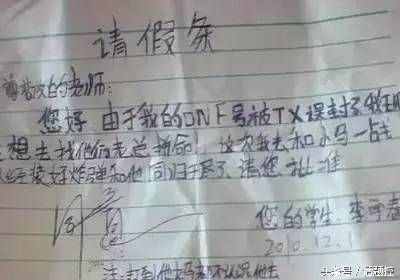 请假条
尊敬的老师:
您好 由于我的DNF号被TX误封了 我
想去找他们老总拼命! 这次我去和小马一
装好炸弹和他同归于尽了 请您批准
同意
您的学生:李
2010.12.1
注:打到他妈都不认识他
头条号/